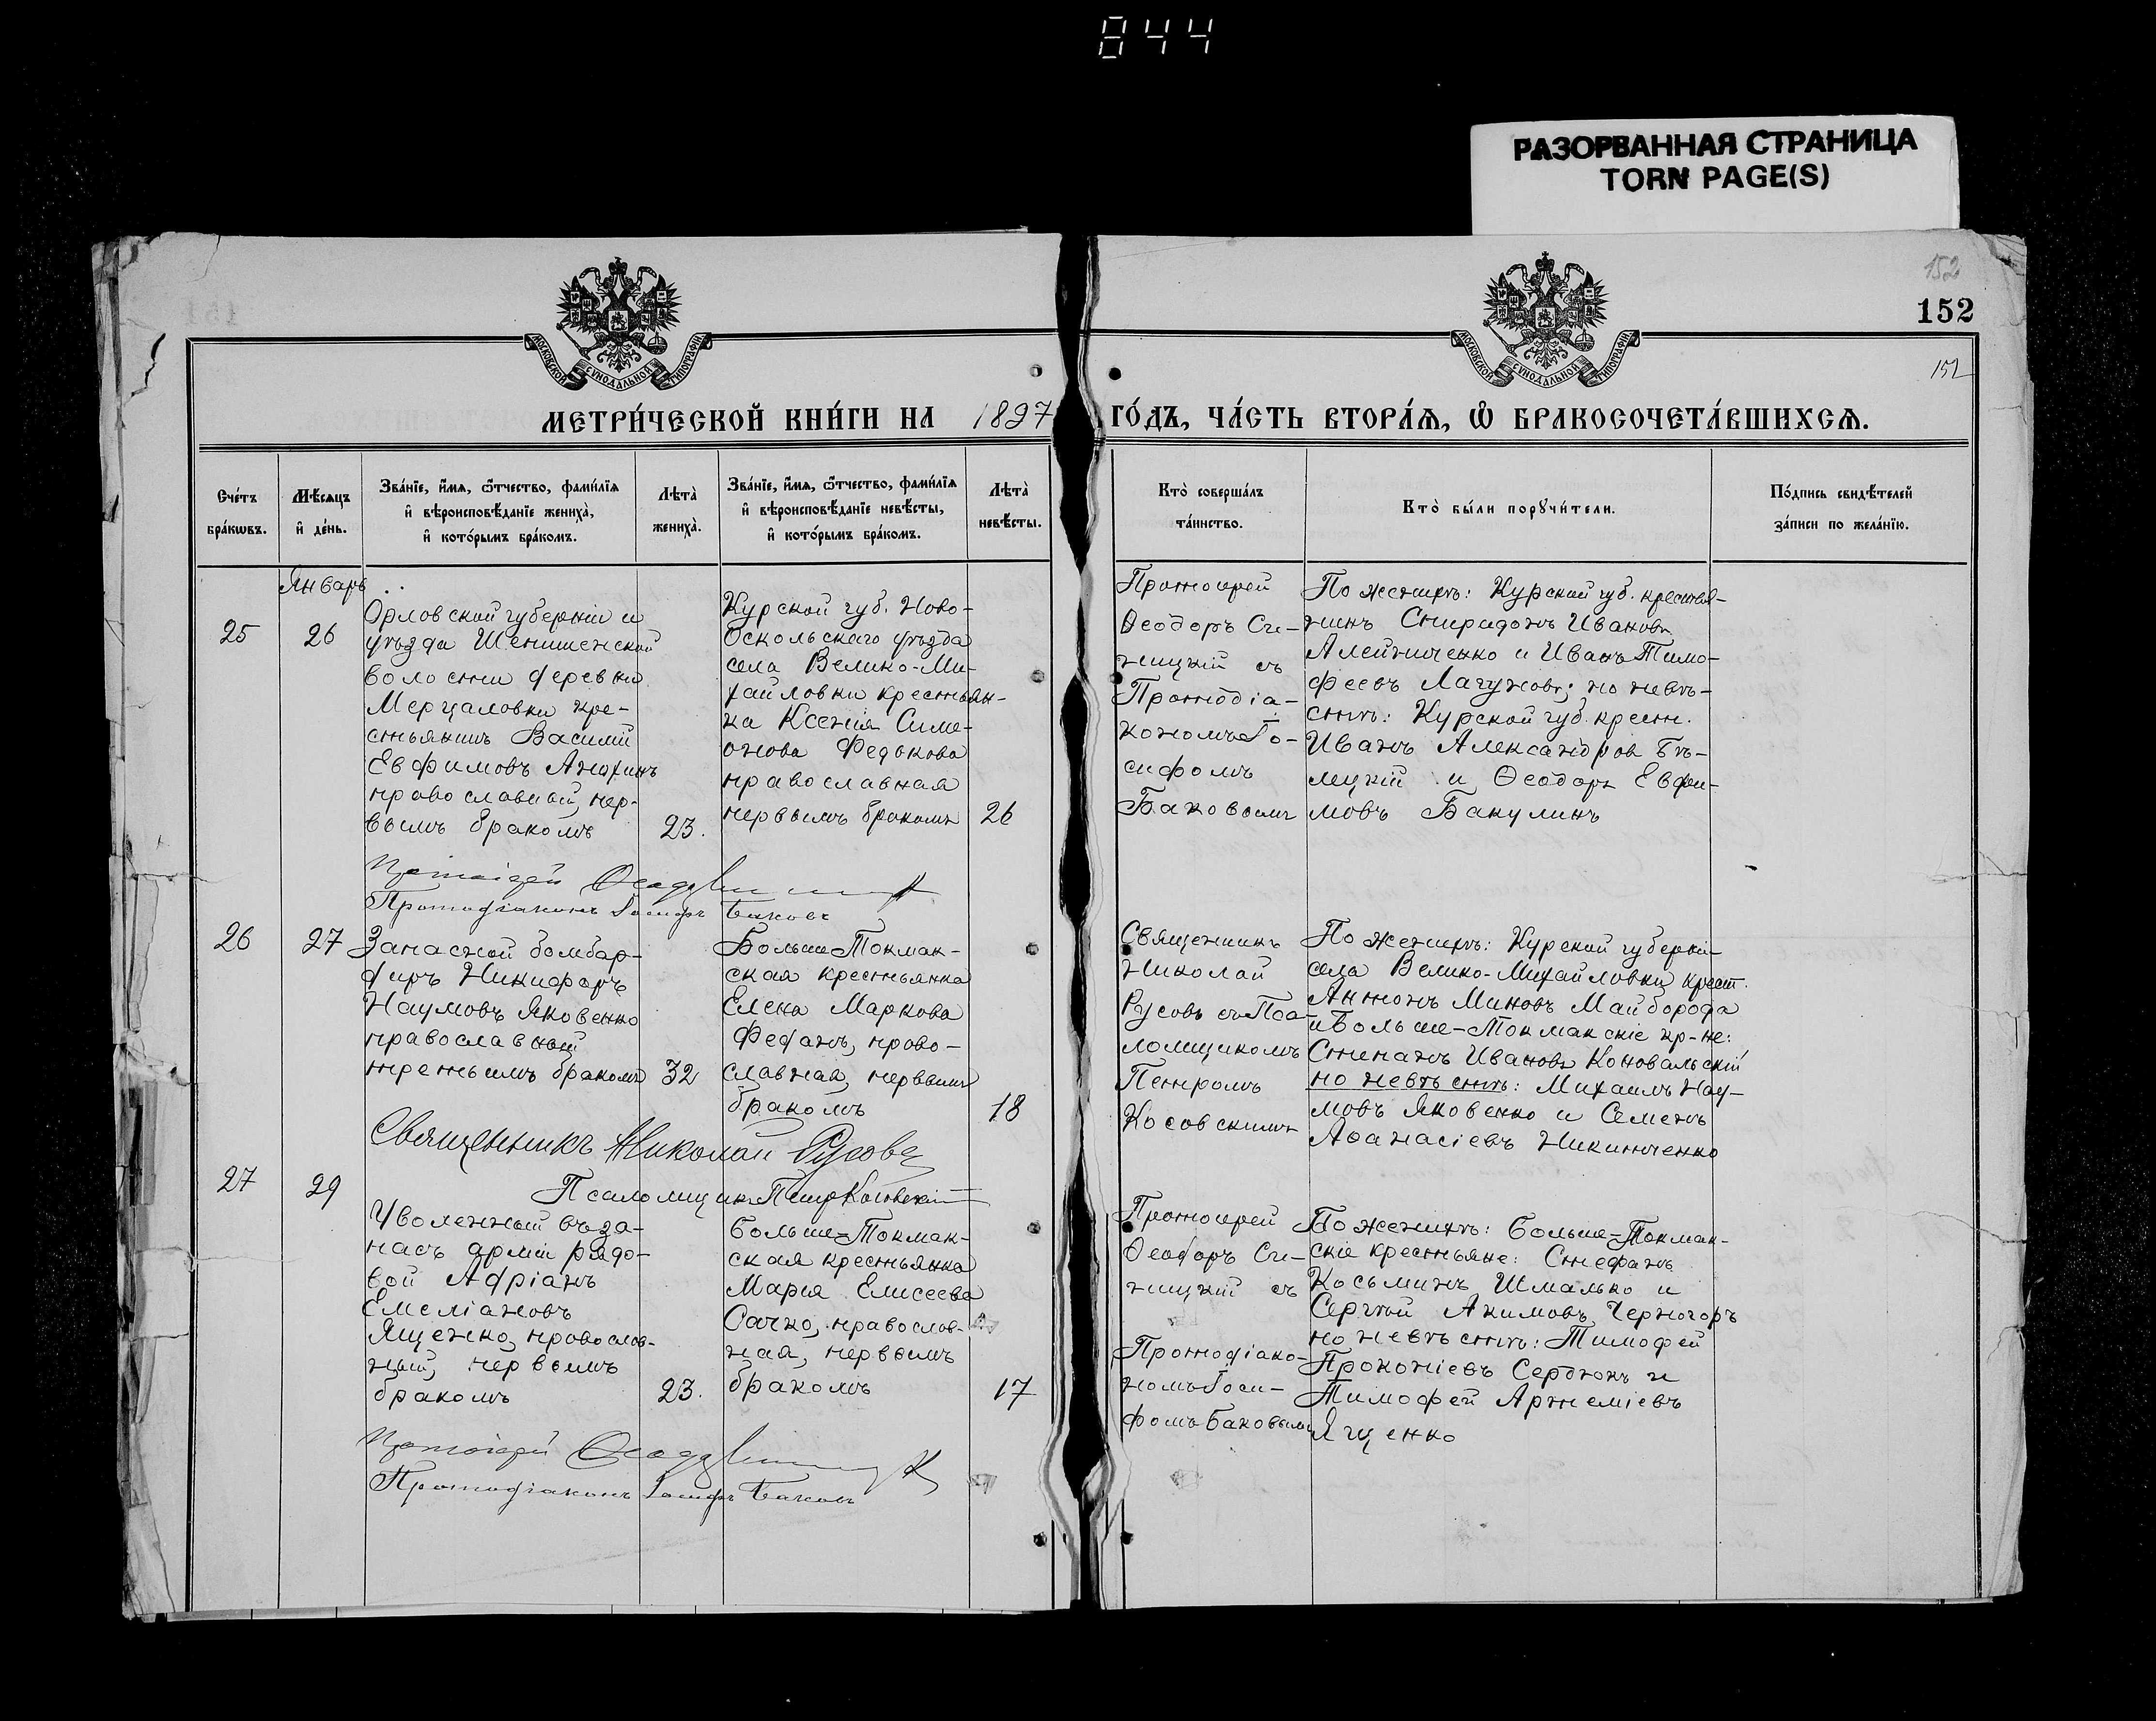 844
РАЗОРВАННАЯ СТРАНИЦА
TORN PAGE(S)
152
152
152
МОСКОВСКОЙ СѴНОДАЛЬНОЙ ТИПОГРАФІИ
МОСКОВСКОЙ СѴНОДАЛЬНОЙ ТИПОГРАФІИ
МЕТРИ́ЧЕСКОЙ КНИ́ГИ НА 1897 ГО́ДЪ, ЧА́СТЬ ВТОРА́Я, Ѽ БРАКОСОЧЕТА́ВШИХСЯ.
Сче́тъ
бра́кѡвъ.
Мѣ́сяцъ
и҆ де́нь.
Зва́нїе, и҆́мя, ѻ҆́тчество, фами́лїя
и҆ вѣроисповѣ́данїе жениха̀,
и҆ кото́рымъ бра́комъ.
Лѣта̀
жениха̀.
Зва́нїе, и҆́мя, ѻ҆́тчество, фами́лїя
и҆ вѣроисповѣ́данїе невѣ́сты,
и҆ кото́рымъ бра́комъ.
Лѣта̀
невѣ́сты.
Кто̀ соверша́лъ
та́инство.
Кто̀ бы́ли порꙋчи́тели.
По́дпись свидѣ́телей
за́писи по жела́нїю.
Январь
25
26
Орловской губерніи и
уѣзда Шенишенской
волости деревни
Мерцаловки кре-
стьянинъ Василій
Евфимовъ Анохинъ
православный, пер-
вымъ бракомъ
23.
Курской губ. Ново-
Оскольскаго уѣзда
села Велико-Ми-
хайловки крестьян-
ка Ксенія Симе-
онова Федькова
православная
первымъ бракомъ
26
Протоіерей
Ѳеодоръ Си-
ницкій съ
Протодіа-
кономъ Іо-
сифомъ
Баковымъ
По женихѣ: Курской губ. крестья-
нинъ Спиридонъ Ивановъ
Алейниченко и Иванъ Тимо-
феевъ Лагуновъ; по невѣ-
стѣ: Курской губ. крест.
Иванъ Александровъ Бѣ-
лецкій и Ѳеодоръ Евфи-
мовъ Бакулинъ
Протоіерей Ѳеодоръ
Протодіаконъ Іосифъ Баковъ
26
27
Запасной бомбар-
диръ Никифоръ
Наумовъ Яковенко
православный
третьимъ бракомъ
32
Больше-Токмак-
ская крестьянка
Елена Маркова
Феданъ, право-
славная, первымъ
бракомъ
18
Священникъ
Николай
Русовъ съ Пса-
ломщикомъ
Петромъ
Косовскимъ
По женихѣ: Курской губерніи
села Велико-Михайловки крест.
Антонъ Миновъ Майборода
и Больше-Токмакскіе кр-не:
Степанъ Ивановъ Коновальскій
по невѣстѣ: Михаилъ Нау-
мовъ Яковенко и Семенъ
Аѳанасіевъ Никитченко
Священникъ Николай Русовъ
Псаломщикъ Петръ Косовскій
27
29
Уволенный въ за-
пасъ арміи рядо-
вой Адріанъ
Емеліановъ
Ященко, православ-
ный, первымъ
бракомъ
23.
Больше-Токмак-
ская крестьянка
Марія Елисеева
Сачко, православ-
ная, первымъ
бракомъ
17
Протоіерей
Ѳеодоръ Си-
ницкій съ
Протодіако-
номъ Іоси-
фомъ Баковымъ
По женихѣ: Больше-Токмак-
скіе крестьяне: Стефанъ
Косьминъ Шмалько и
Сергѣй Акимовъ Черногоръ
по невѣстѣ: Тимофей
Прокопіевъ Сердюкъ и
Тимофей Артеміевъ
Ященко
Протоіерей Ѳеодоръ
Протодіаконъ Іосифъ Баковъ